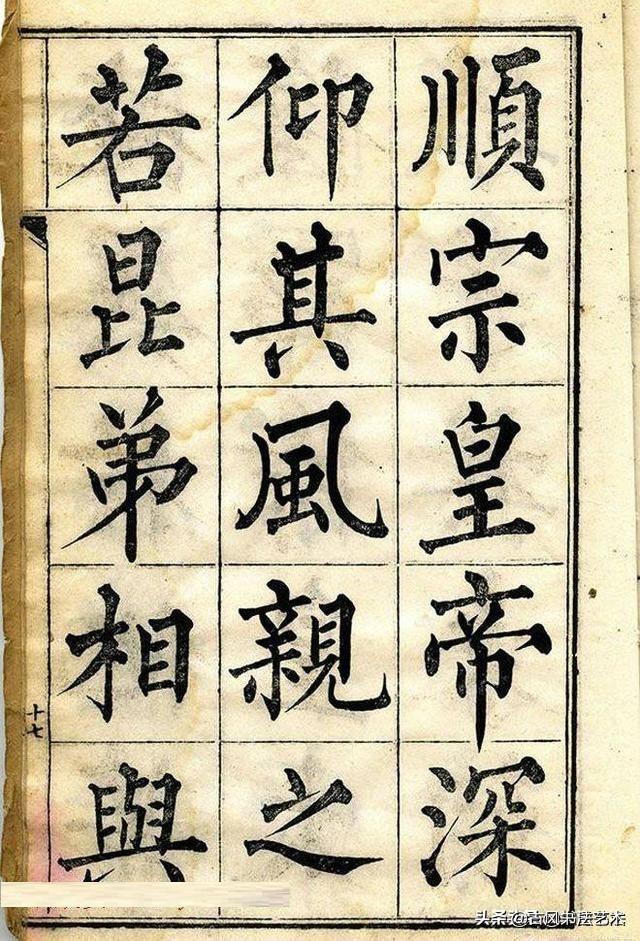 順宗皇帝深
仰其風親之
若昆弟相與
十七
头条@古风书法艺术